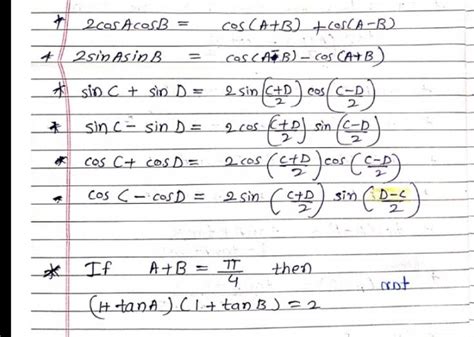 * 2cosAcosB = cos(A+B) + cos(A-B)
* 2sinAsinB = cos(A-B) - cos(A+B)
* sin C + sin D = 2 sin (C+D/2) cos (C-D/2)
* sin C - sin D = 2 cos (C+D/2) sin (C-D/2)
* cos C + cos D = 2 cos (C+D/2) cos (C-D/2)
* cos C - cos D = 2 sin (C+D/2) sin (D-C/2)
* If A+B = π/4 then
(1+tanA) (1+tanB) = 2